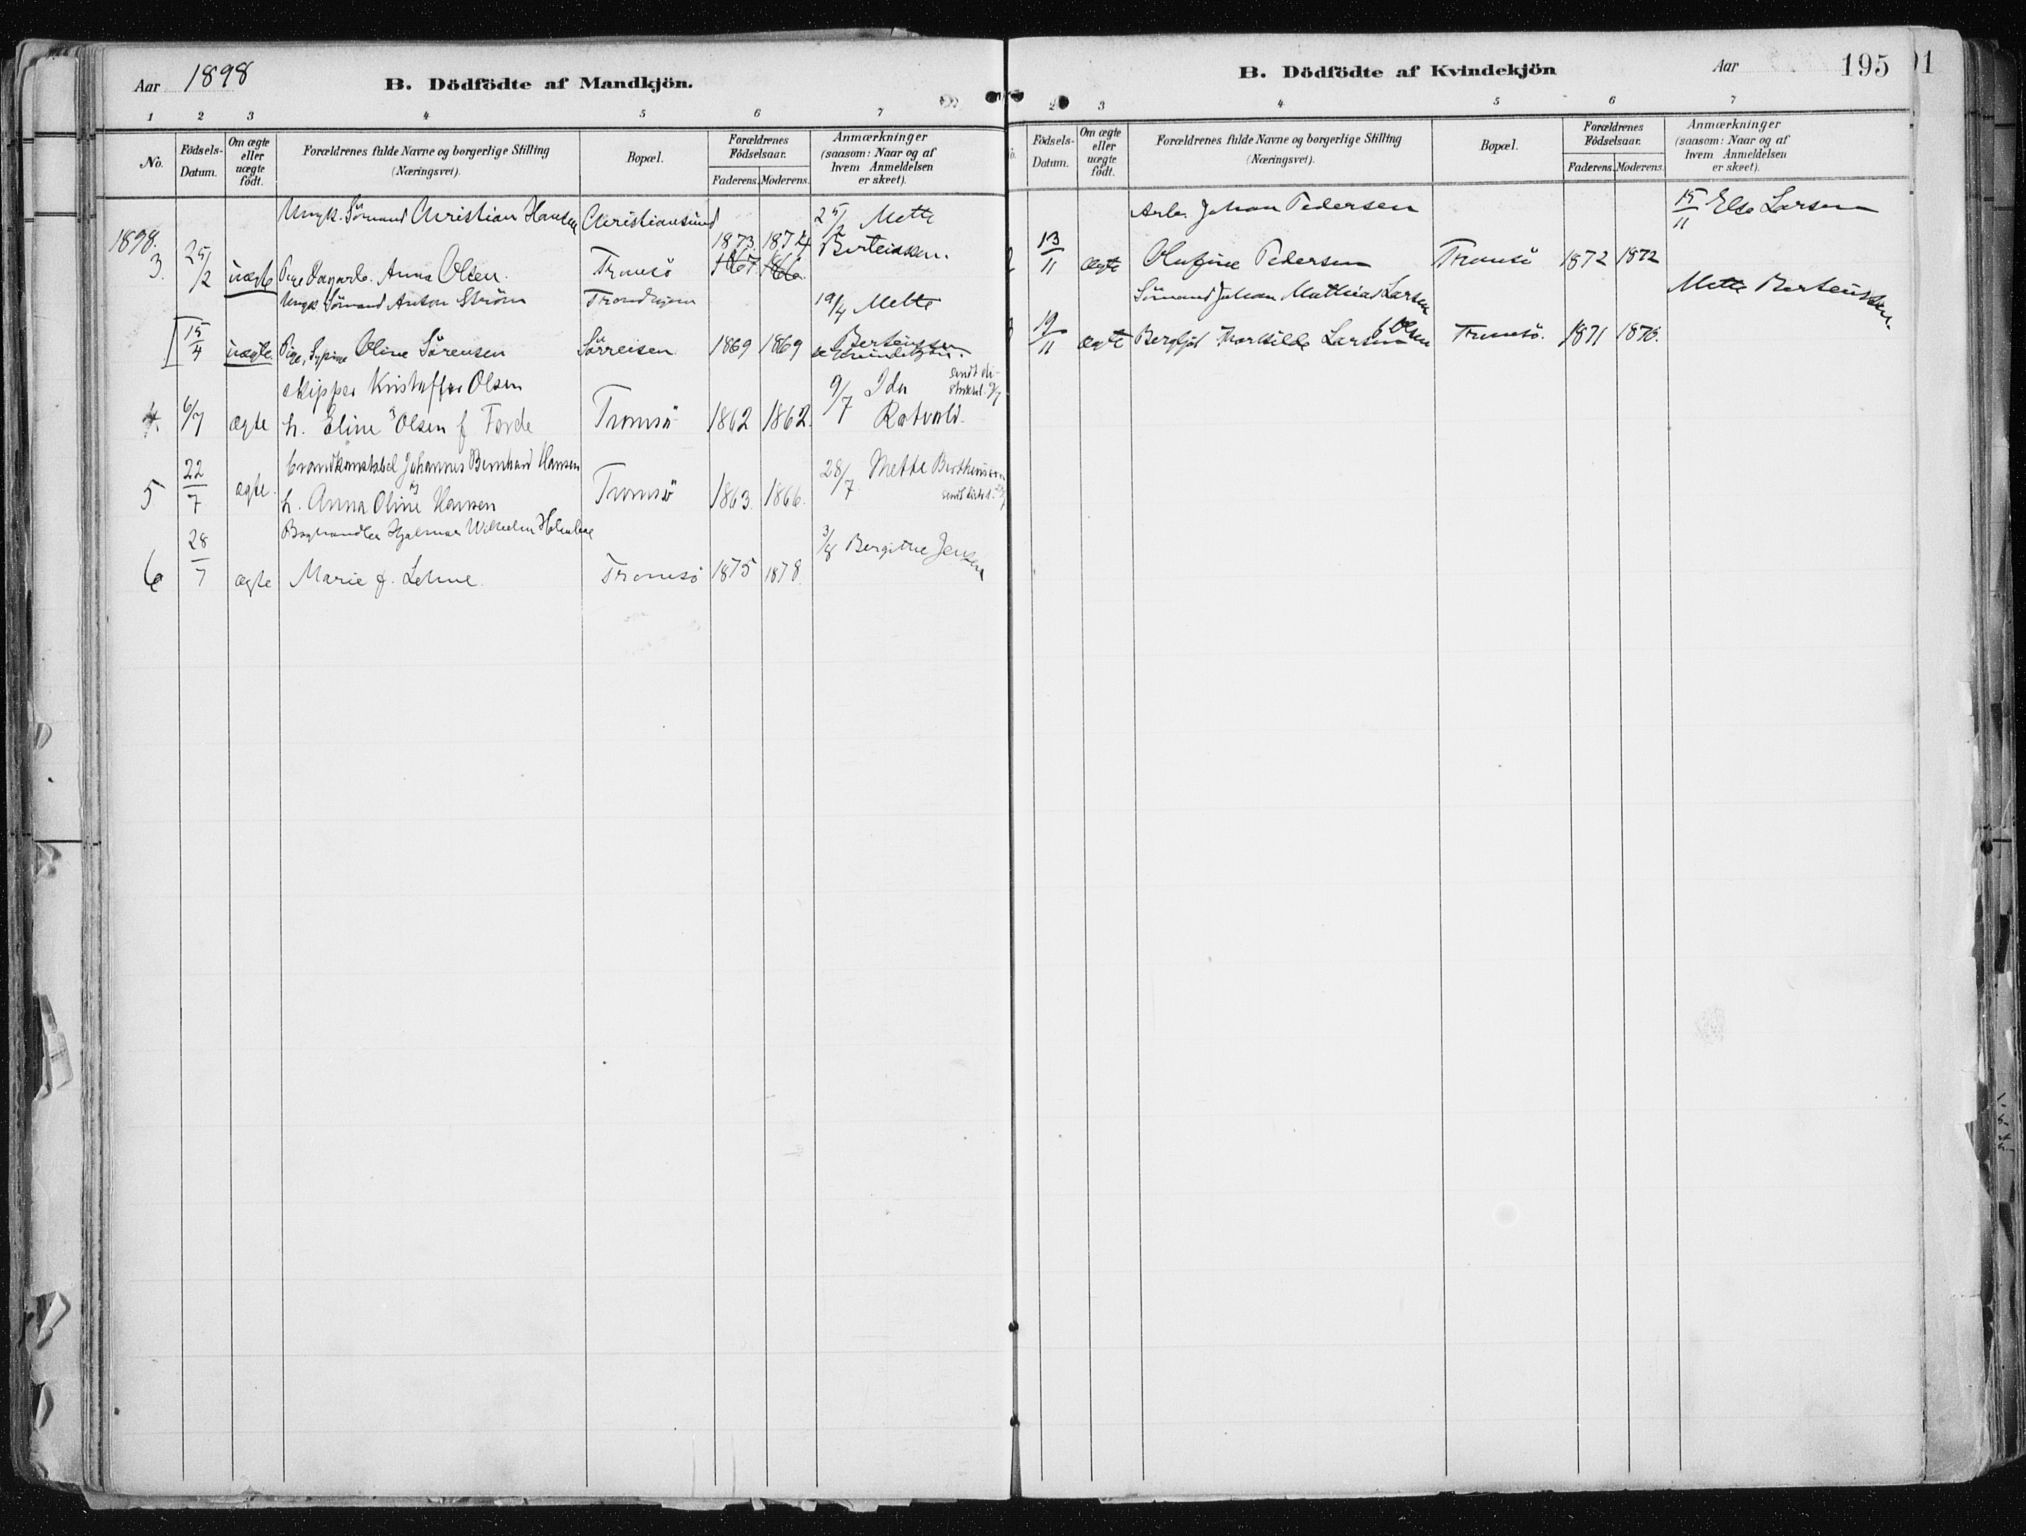 Aar 1898
B. Dödfödte af Mandkjön.
1 2 3 4 5 6 7
No.
Födsels-Datum.
Om ægte eller uægte født.
Forældrenes fulde Navne og borgerlige Stilling (Næringsvei).
Bopæl.
Forældrenes Fødselsaar.
Faderens. Moderens.
Anmærkninger (saasom: Naar og af hvem Anmeldelsen er skeet).
Ungk. Sömand Christian Hansen Christiansund 25/2 Mette
1898. 1873. 1874 Berteussen.
3. 25/2 uægte Pige Dagarb. Anna Olsen. Tromsö 1867 1866
Ungk. Sömand Anton Ström Trondhjem 19/4 Mette
15/4 uægte Pige, Sypige Oline Sörensen Sörreisen 1869 1869 Berteussen
se Kvindekjön.
Skipper Kristoffer Olsen 9/7 Ida
4. 6/7 ægte h. Eline Olsen f Förde Tromsö 1862 1862. Rotvold.
Brandkonstabel Johannes Bernhard Hansen 28/7 Mette Bertheussen
5 22/7 ægte. h. Anna Oline Hansen Tromsö 1863. 1866.
Boghandler Hjalmar Wilhelm Holmboe 3/8 Bergithe Jensen
6 28/7 ægte Marie f. Lehne. Tromsö 1875 1878.
B. Dödfödte af Kvindekjön
Aar 195
91
2 3 4 5 6 7
Födsels-Datum.
Om ægte eller uægte födt.
Forældrenes fulde Navne og borgerlige Stilling (Næringsvei).
Bopæl.
Forældrenes Födselsaar.
Faderens. Moderens.
Anmærkninger (saasom: Naar og af hvem Anmeldelsen er skeet).
Arb. Johan Pedersen 15/11 Else Larsen
2 13/11 ægte Olufine Pedersen Tromsö 1872 1872
Sömand Johan Mathias Larsen Mette Berteussen.
19/11 ægte Bergljot Marthilde Larsen f Olsen Tromsö. 1871 1878.